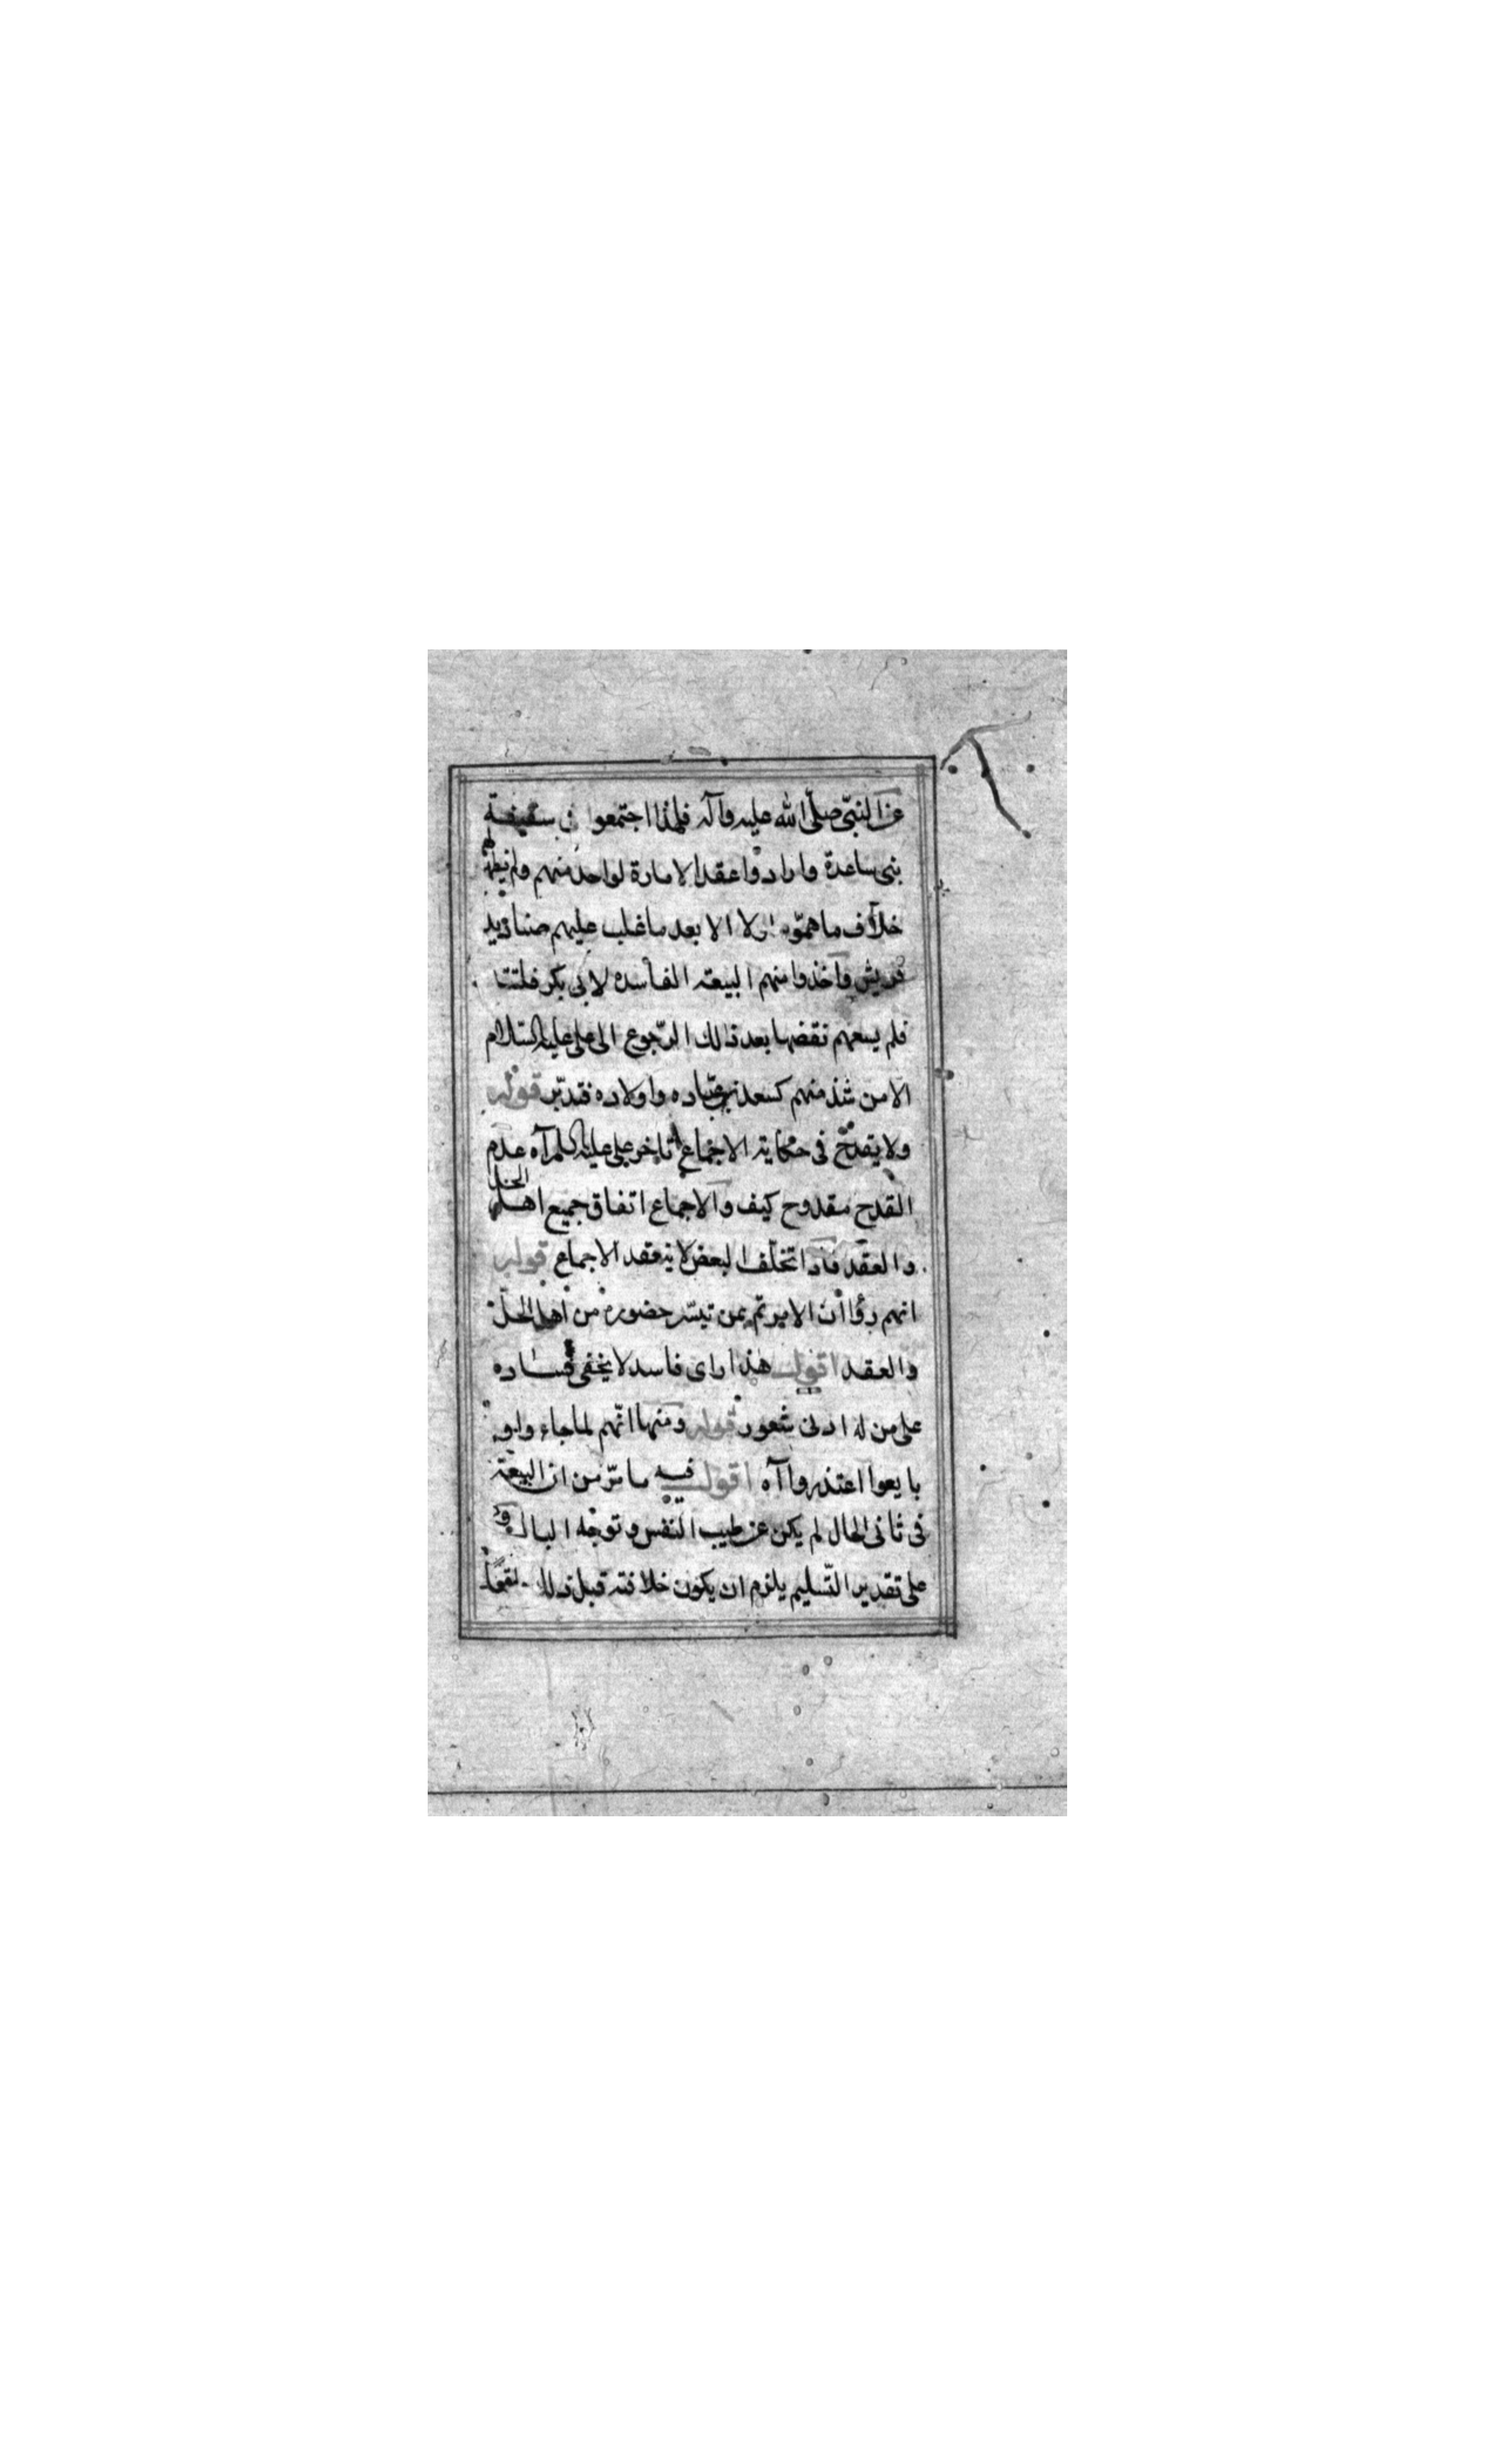 عن النبی صلّی الله علیه وآله فلهذا اجتمعوا فی سقیفة
بنی ساعدة وارادوا عقد الامارة لواحد منهم ولم یظهر لهم
خلاف ما همّوه اولا الا بعد ما غلب علیهم صنادید
قریش واخذوا منهم البیعه الفاسده لابی بکر فلتتا
فلم یسعهم نقضها بعد ذالک الرّجوع الی علی علیه السّلام
الا من شذ منهم کسعد بن عبّاده واولاده فتدبّر قوله
ولا یقدح فی حکایة الاجماع تاخر علی علیه السلم آه عدم
القدح مقدوح کیف والاجماع اتفاق جمیع اهل الحل
والعقد فاذا تخلّف البعض لا ینعقد الاجماع قوله
انهم رؤا ان الامر تم بمن تیسّر حضوره من اهل الحلّ
والعقد اقول هذا رای فاسد لا یخفی فساده
علی من له ادنی شعور قوله ومنها انّهم لما جاءوا و
بایعوا اعتذروا آه اقول فیه ما مرّ من ان البیعة
فی ثانی الحال لم یکن عن طیب النفس و توجه البال و
علی تقدیر التّسلیم یلزم ان یکون خلافته قبل ذلک